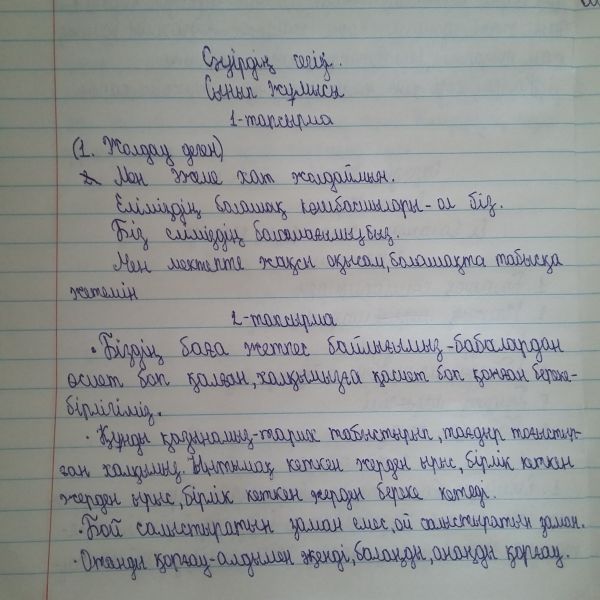 Сәуірдің сегізі.
Сынып жұмысы
1-тапсырма
(1. Жолдау деген)
Мен Және хат жолдаймын.
Еліміздің болашақ көшбасшылары-ол біз.
Біз еліміздің болашағымызбыз.
Мен мектепте жақсы оқысам, болашақта табысқа
жетемін
2-тапсырма
• Біздің баға жетпес байлығымыз-бабалардан
өсиет боп қалған, халқымызға қасиет боп қонған береке-
бірлігіміз.
• Құнды қазынамыз-тарих табыстырып, тағдыр тоғыстыр-
ған халқымыз. Ынтымақ кеткен жерден ырыс, бірлік кеткен
жерден ырыс, бірлік кеткен жерден береке кетеді.
• Бой салыстыратын заман емес, ой салыстыратын заман.
• Отанды қорғау-алдымен үйіңді, балаңды, анаңды қорғау.